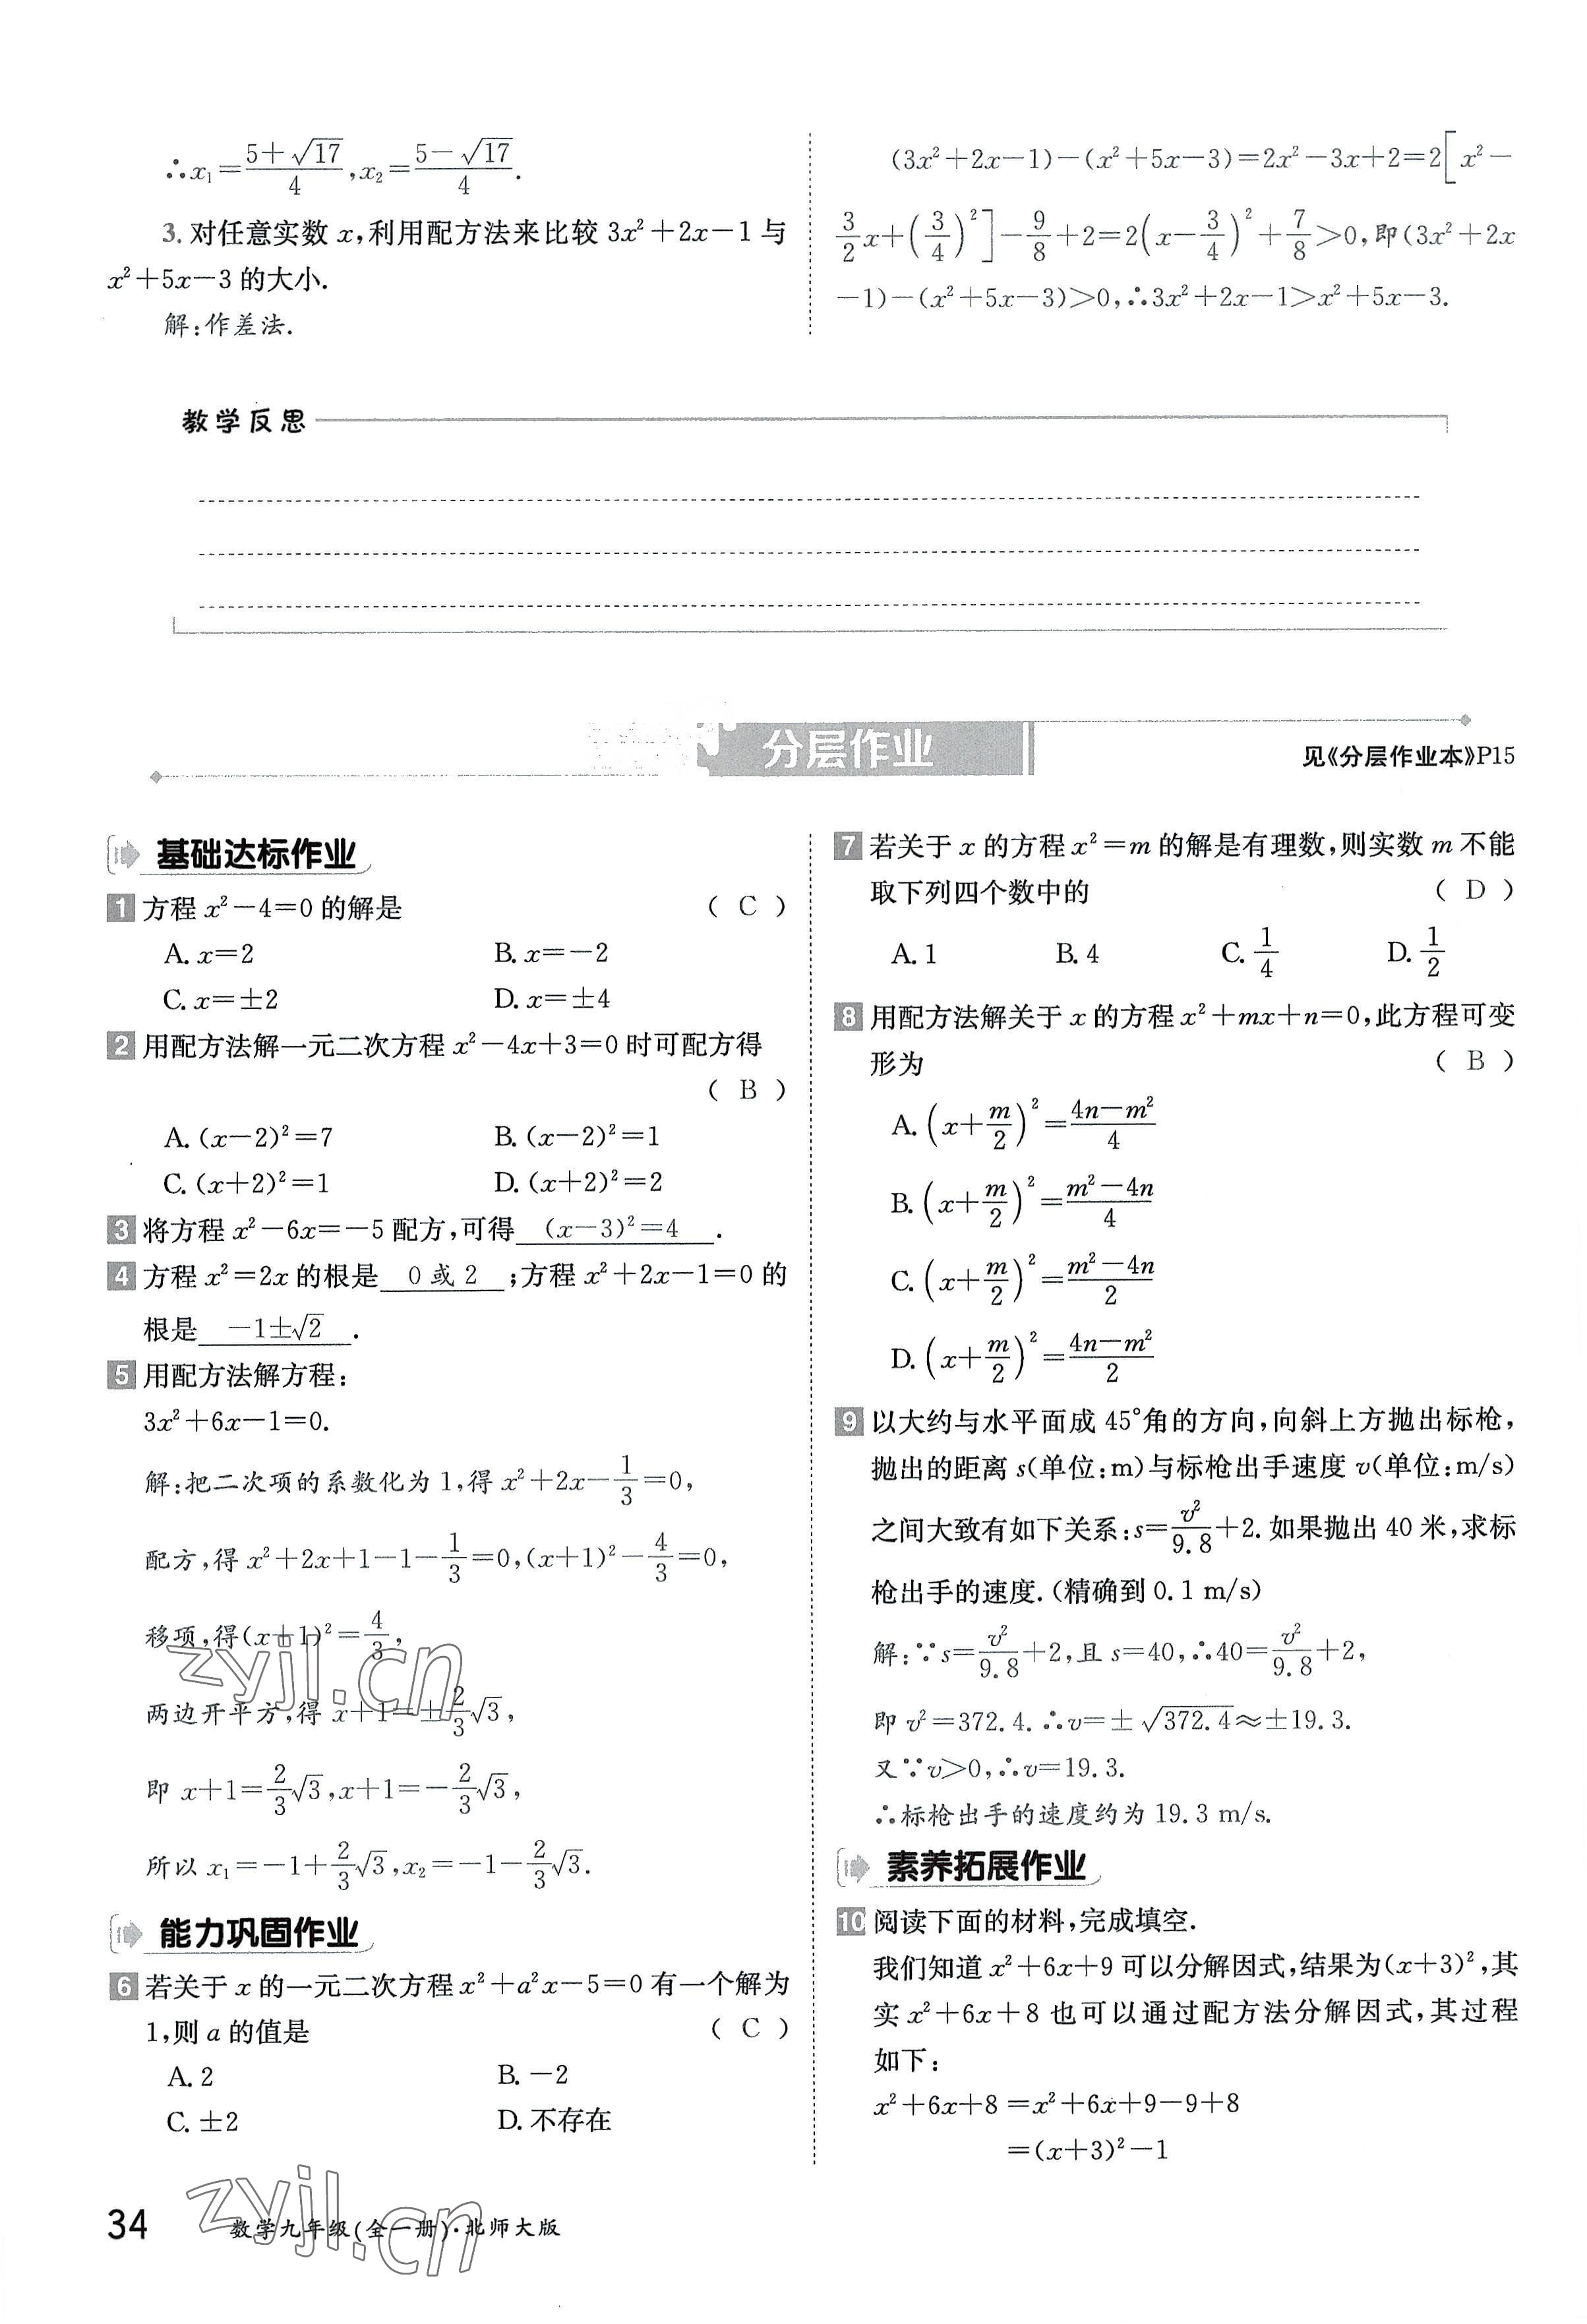 ∴x₁=(5+√17)/4,x₂=(5-√17)/4.
3. 对任意实数 x,利用配方法来比较 3x²+2x-1 与
x²+5x-3 的大小.
解:作差法.
(3x²+2x-1)-(x²+5x-3)=2x²-3x+2=2[x²-
3/2x+(3/4)²]-9/8+2=2(x-3/4)²+7/8>0,即(3x²+2x
-1)-(x²+5x-3)>0,∴3x²+2x-1>x²+5x-3.
教学反思
分层作业
见《分层作业本》P15
基础达标作业
1 方程 x²-4=0 的解是 ( C )
A. x=2 B. x=-2
C. x=±2 D. x=±4
2 用配方法解一元二次方程 x²-4x+3=0 时可配方得
( B )
A. (x-2)²=7 B. (x-2)²=1
C. (x+2)²=1 D. (x+2)²=2
3 将方程 x²-6x=-5 配方,可得 (x-3)²=4 .
4 方程 x²=2x 的根是 0 或 2 ;方程 x²+2x-1=0 的
根是 -1±√2 .
5 用配方法解方程:
3x²+6x-1=0.
解:把二次项的系数化为 1,得 x²+2x-1/3=0,
配方,得 x²+2x+1-1-1/3=0,(x+1)²-4/3=0,
移项,得(x+1)²=4/3,
两边开平方,得 x+1=±2/3√3,
即 x+1=2/3√3,x+1=-2/3√3,
所以 x₁=-1+2/3√3,x₂=-1-2/3√3.
能力巩固作业
6 若关于 x 的一元二次方程 x²+a²x-5=0 有一个解为
1,则 a 的值是 ( C )
A. 2 B. -2
C. ±2 D. 不存在
7 若关于 x 的方程 x²=m 的解是有理数,则实数 m 不能
取下列四个数中的 ( D )
A. 1 B. 4 C. 1/4 D. 1/2
8 用配方法解关于 x 的方程 x²+mx+n=0,此方程可变
形为 ( B )
A. (x+m/2)²=(4n-m²)/4
B. (x+m/2)²=(m²-4n)/4
C. (x+m/2)²=(m²-4n)/2
D. (x+m/2)²=(4n-m²)/2
9 以大约与水平面成 45°角的方向,向斜上方抛出标枪,
抛出的距离 s(单位:m)与标枪出手速度 v(单位:m/s)
之间大致有如下关系:s=v²/9.8+2. 如果抛出 40 米,求标
枪出手的速度.(精确到 0.1 m/s)
解:∵s=v²/9.8+2,且 s=40,∴40=v²/9.8+2,
即 v²=372.4. ∴v=±√372.4≈±19.3.
又∵v>0,∴v=19.3.
∴标枪出手的速度约为 19.3 m/s.
素养拓展作业
10 阅读下面的材料,完成填空.
我们知道 x²+6x+9 可以分解因式,结果为(x+3)²,其
实 x²+6x+8 也可以通过配方法分解因式,其过程
如下:
x²+6x+8 =x²+6x+9-9+8
=(x+3)²-1
zyjl.cn
zyjl.cn
34 数学九年级(全一册)·北师大版